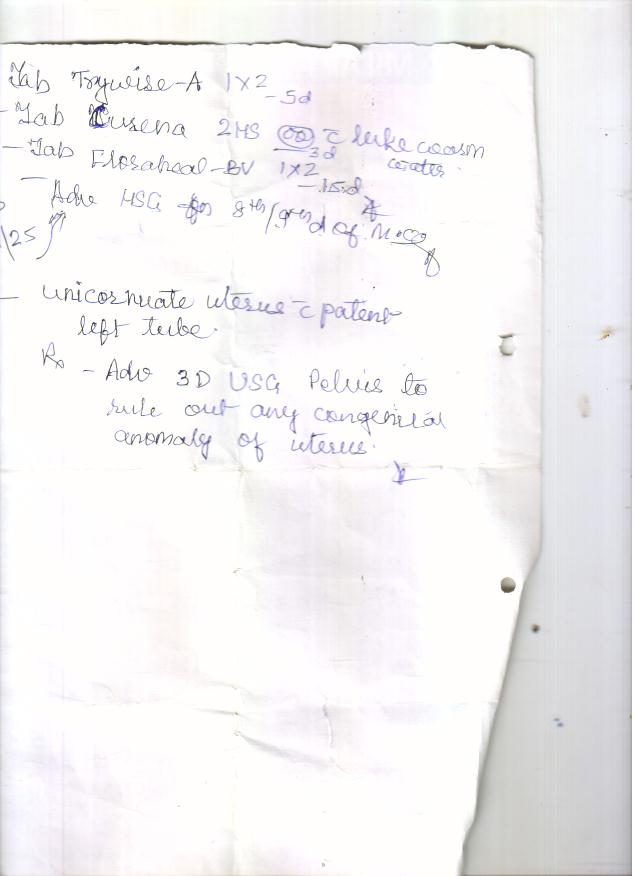 Tab Trywise-A 1x2 - 5d
- Tab Cusena 2HS c luke warm water.
3d
- Tab Floraheal-BV 1x2
- 15d
- Adv HSG for 8th/9th d of M.C
25
- unicornuate uterus c patent
left tube.
Rx - Adv 3D USG Pelvis to
rule out any congenital
anomaly of uterus.